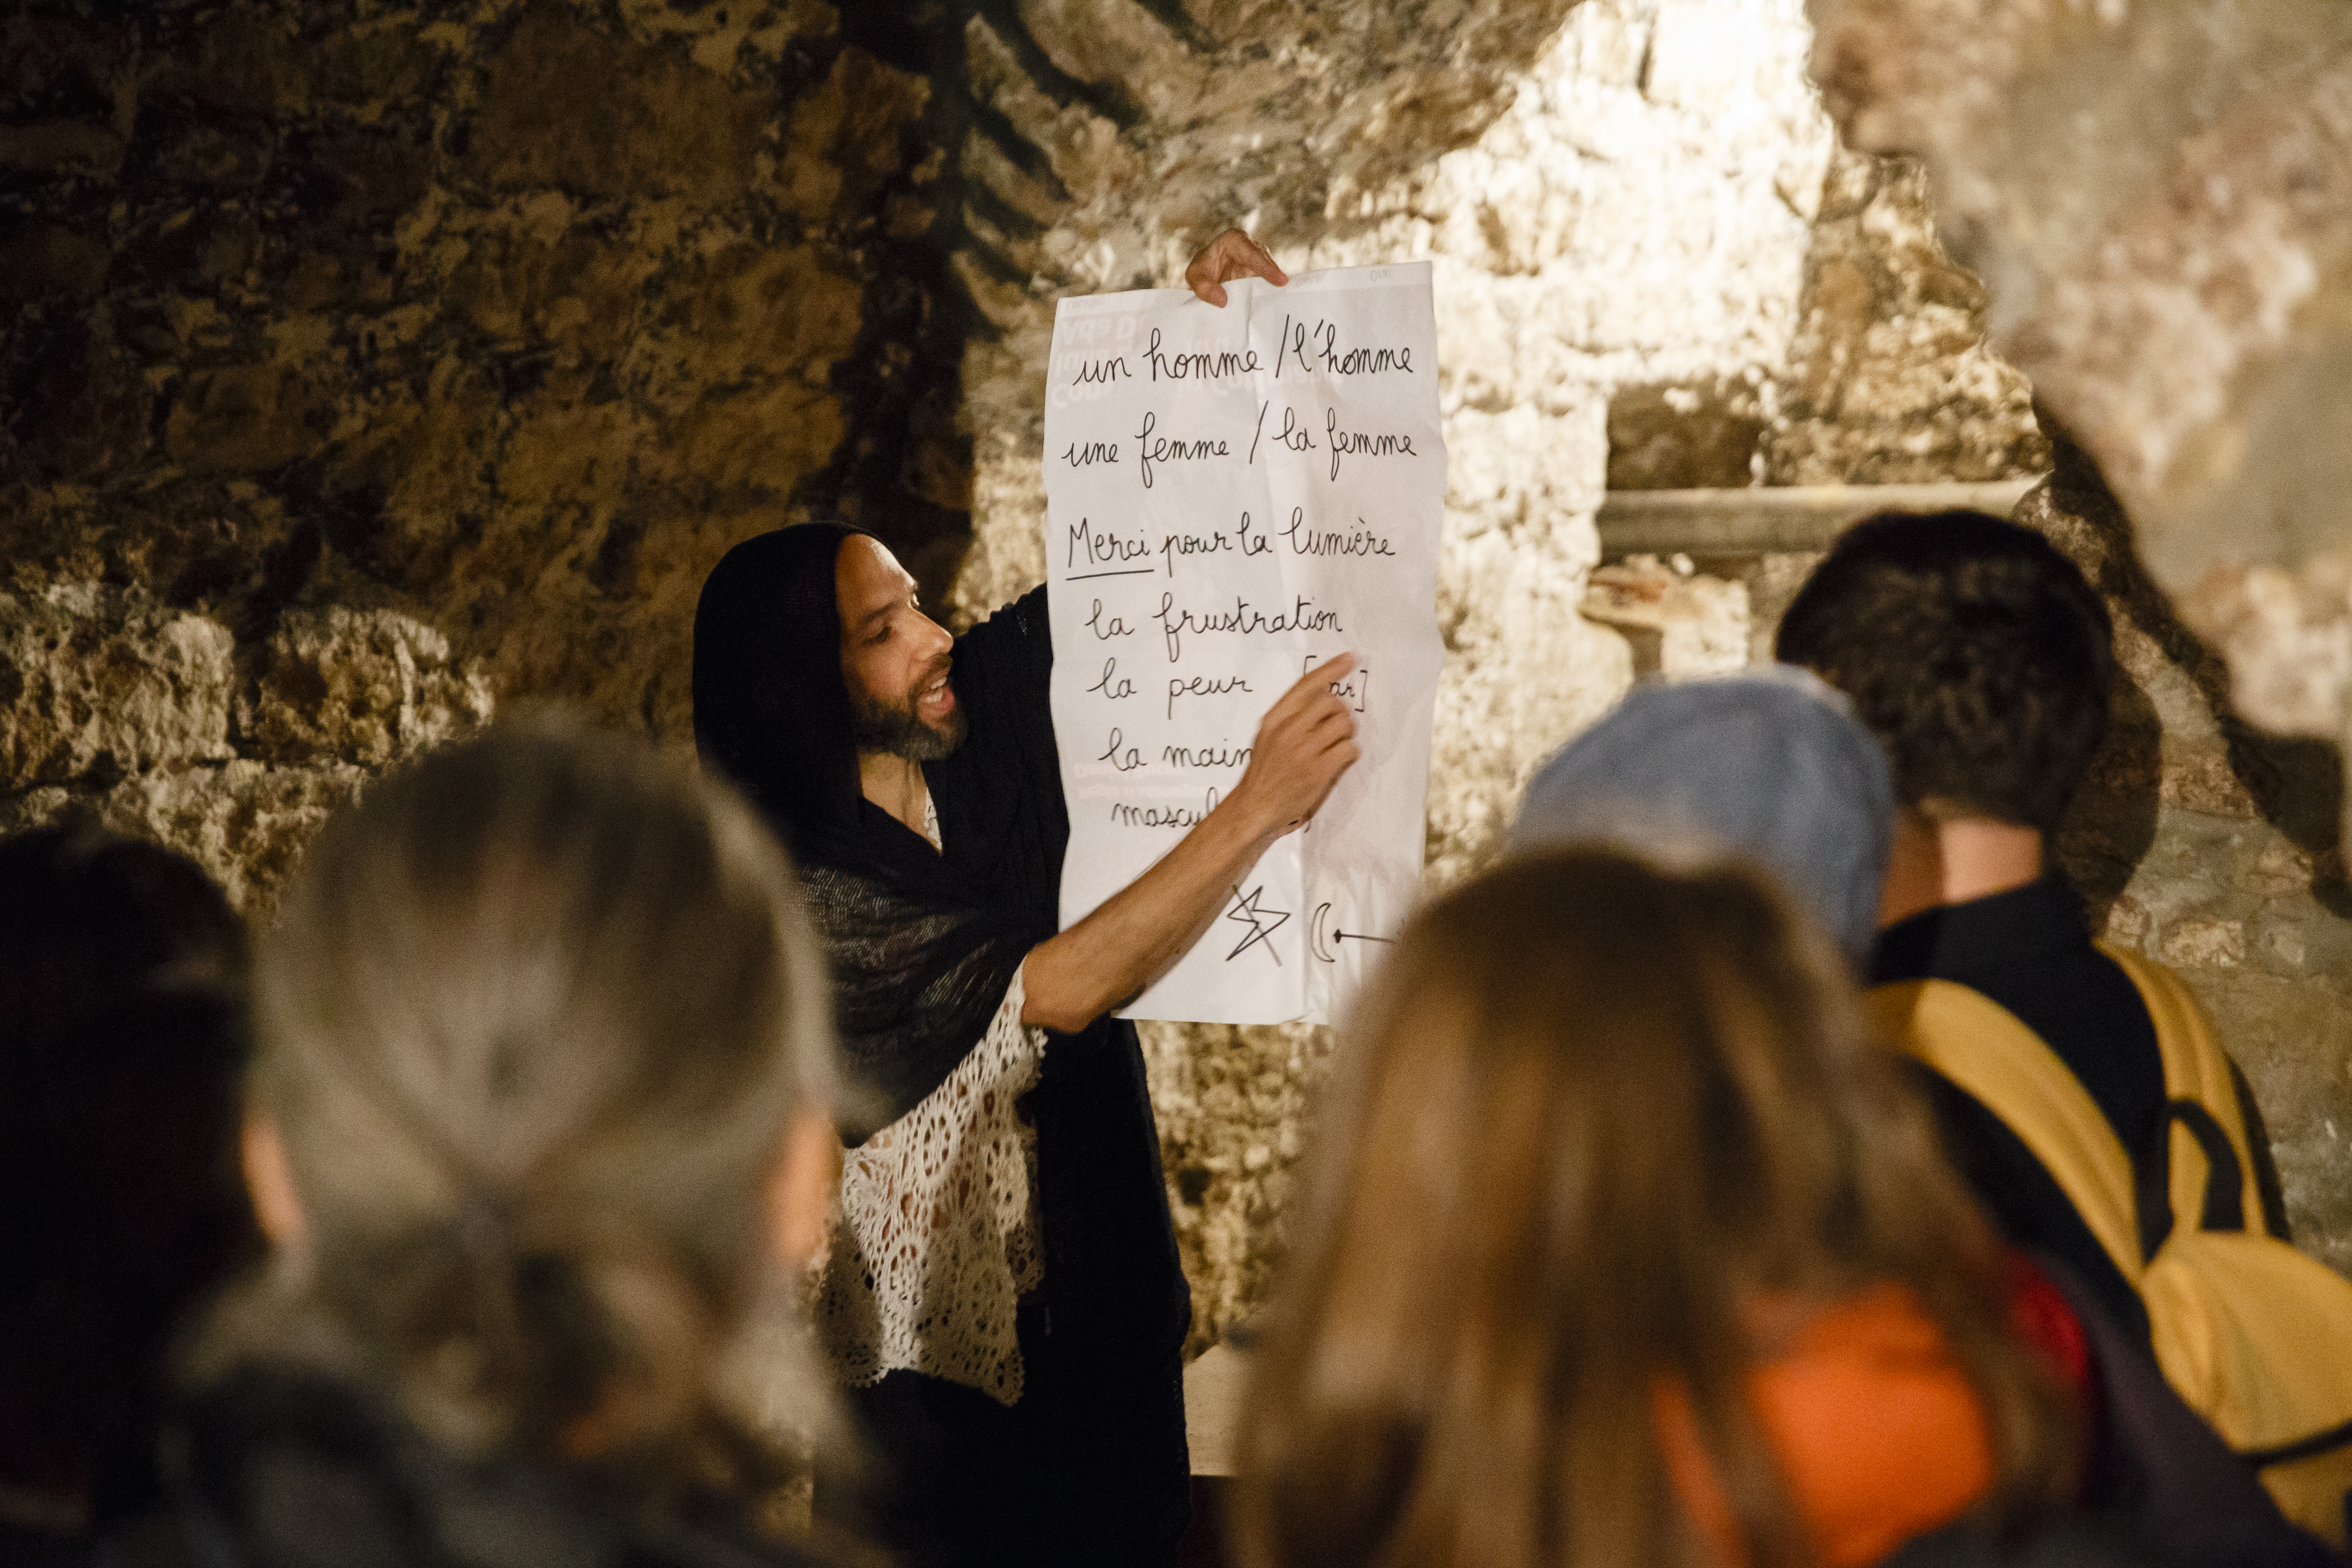 un homme / l'homme
une femme / la femme
Merci pour la lumière
la frustration
la peur
la main